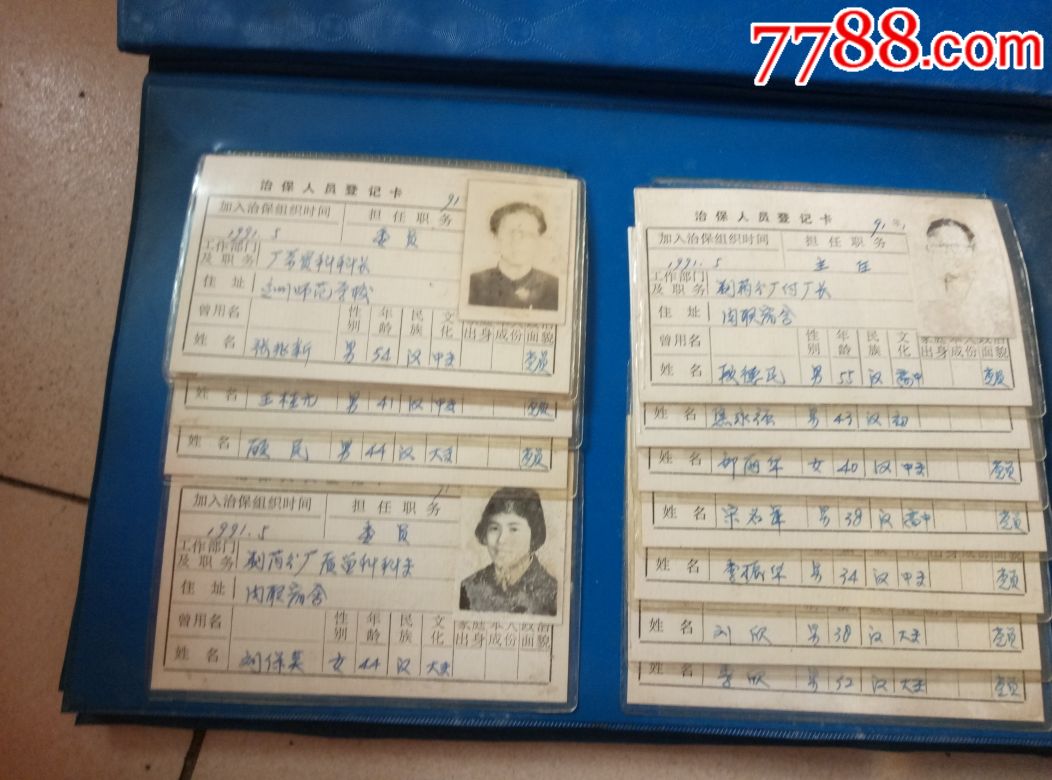 7788.com
治保人员登记卡
91
加入治保组织时间 担任职务
1991.5 委员
工作部门及职务 厂劳资科科长
住址 师范学校
曾用名 性别 年龄 民族 文化 家庭出身 本人成份 政治面貌
姓名 张兆新 男 54 汉 中专 党员
王桂元 男 41 汉 中专 党员
姓名 顾民 男 44 汉 大专 党员
91
加入治保组织时间 担任职务
1991.5 委员
工作部门及职务 制药分厂质管科科长
住址 肉联宿舍
曾用名 性别 年龄 民族 文化 家庭出身 本人成份 政治面貌
姓名 刘保英 女 44 汉 大专
治保人员登记卡
91年
加入治保组织时间 担任职务
1991.5 主任
工作部门及职务 制药分厂付厂长
住址 肉联宿舍
曾用名 性别 年龄 民族 文化 家庭出身 本人成份 政治面貌
姓名 耿德民 男 55 汉 高中 党员
姓名 焦永强 男 43 汉 初
姓名 女 40 汉 中专 党员
姓名 男 38 汉 高中 党员
姓名 李振华 男 34 汉 中专 党员
姓名 刘欣 男 38 汉 大专 党员
姓名 李欣 男 32 汉 大专 党员